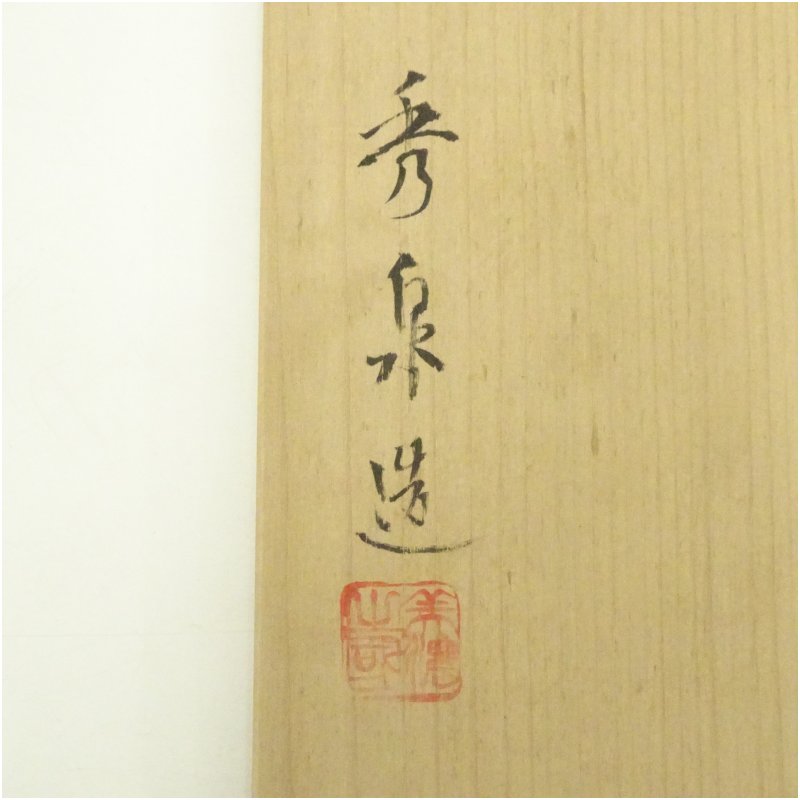 秀泉造